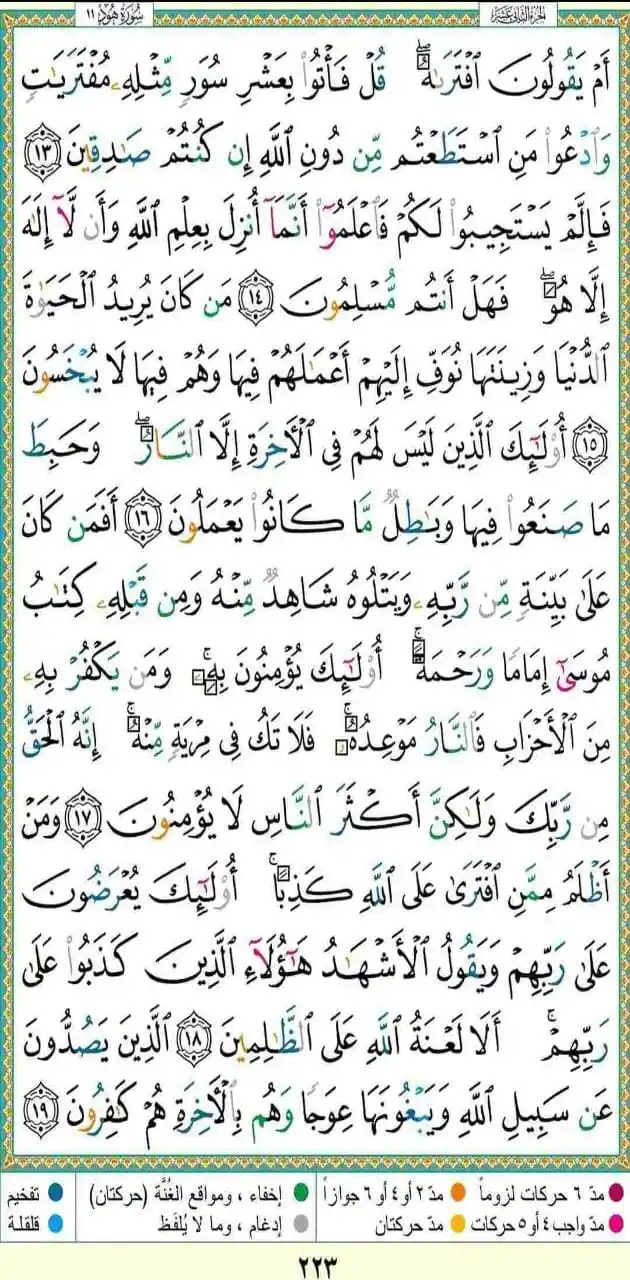 سُورَةُ هُودٍ ١١ الجزء الثاني عشر
أَمْ يَقُولُونَ ٱفْتَرَىٰهُۖ قُلْ فَأْتُوا۟ بِعَشْرِ سُوَرٍ مِّثْلِهِۦ مُفْتَرَيَـٰتٍ
وَٱدْعُوا۟ مَنِ ٱسْتَطَعْتُم مِّن دُونِ ٱللَّهِ إِن كُنتُمْ صَـٰدِقِينَ ١٣
فَإِلَّمْ يَسْتَجِيبُوا۟ لَكُمْ فَٱعْلَمُوٓا۟ أَنَّمَآ أُنزِلَ بِعِلْمِ ٱللَّهِ وَأَن لَّآ إِلَـٰهَ
إِلَّا هُوَۖ فَهَلْ أَنتُم مُّسْلِمُونَ ١٤ مَن كَانَ يُرِيدُ ٱلْحَيَوٰةَ
ٱلدُّنْيَا وَزِينَتَهَا نُوَفِّ إِلَيْهِمْ أَعْمَـٰلَهُمْ فِيهَا وَهُمْ فِيهَا لَا يُبْخَسُونَ
١٥ أُو۟لَـٰٓئِكَ ٱلَّذِينَ لَيْسَ لَهُمْ فِى ٱلْـَٔاخِرَةِ إِلَّا ٱلنَّارُۖ وَحَبِطَ
مَا صَنَعُوا۟ فِيهَا وَبَـٰطِلٌ مَّا كَانُوا۟ يَعْمَلُونَ ١٦ أَفَمَن كَانَ
عَلَىٰ بَيِّنَةٍ مِّن رَّبِّهِۦ وَيَتْلُوهُ شَاهِدٌ مِّنْهُ وَمِن قَبْلِهِۦ كِتَـٰبُ
مُوسَىٰٓ إِمَامًا وَرَحْمَةًۚ أُو۟لَـٰٓئِكَ يُؤْمِنُونَ بِهِۦۚ وَمَن يَكْفُرْ بِهِۦ
مِنَ ٱلْأَحْزَابِ فَٱلنَّارُ مَوْعِدُهُۥۚ فَلَا تَكُ فِى مِرْيَةٍ مِّنْهُۚ إِنَّهُ ٱلْحَقُّ
مِن رَّبِّكَ وَلَـٰكِنَّ أَكْثَرَ ٱلنَّاسِ لَا يُؤْمِنُونَ ١٧ وَمَنْ
أَظْلَمُ مِمَّنِ ٱفْتَرَىٰ عَلَى ٱللَّهِ كَذِبًاۚ أُو۟لَـٰٓئِكَ يُعْرَضُونَ
عَلَىٰ رَبِّهِمْ وَيَقُولُ ٱلْأَشْهَـٰدُ هَـٰٓؤُلَآءِ ٱلَّذِينَ كَذَبُوا۟ عَلَىٰ
رَبِّهِمْۚ أَلَا لَعْنَةُ ٱللَّهِ عَلَى ٱلظَّـٰلِمِينَ ١٨ ٱلَّذِينَ يَصُدُّونَ
عَن سَبِيلِ ٱللَّهِ وَيَبْغُونَهَا عِوَجًا وَهُم بِٱلْـَٔاخِرَةِ هُمْ كَـٰفِرُونَ ١٩
مدّ ٦ حركات لزوماً مدّ ٢ أو ٤ أو ٦ جوازاً إخفاء ، ومواقع الغُنَّة (حركتان) تفخيم
مدّ واجب ٤ أو ٥ حركات مدّ حركتان إدغام ، وما لا يُلفَظ قلقلة
٢٢٣